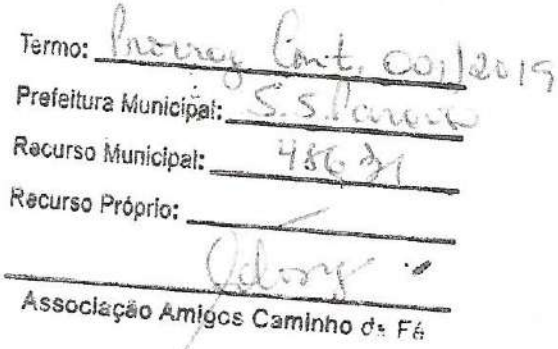 Termo: Prorrog Cont. 001/2019
Prefeitura Municipal: S. S. Paraiso
Recurso Municipal: 486 31
Recurso Próprio:
Associação Amigos Caminho da Fé